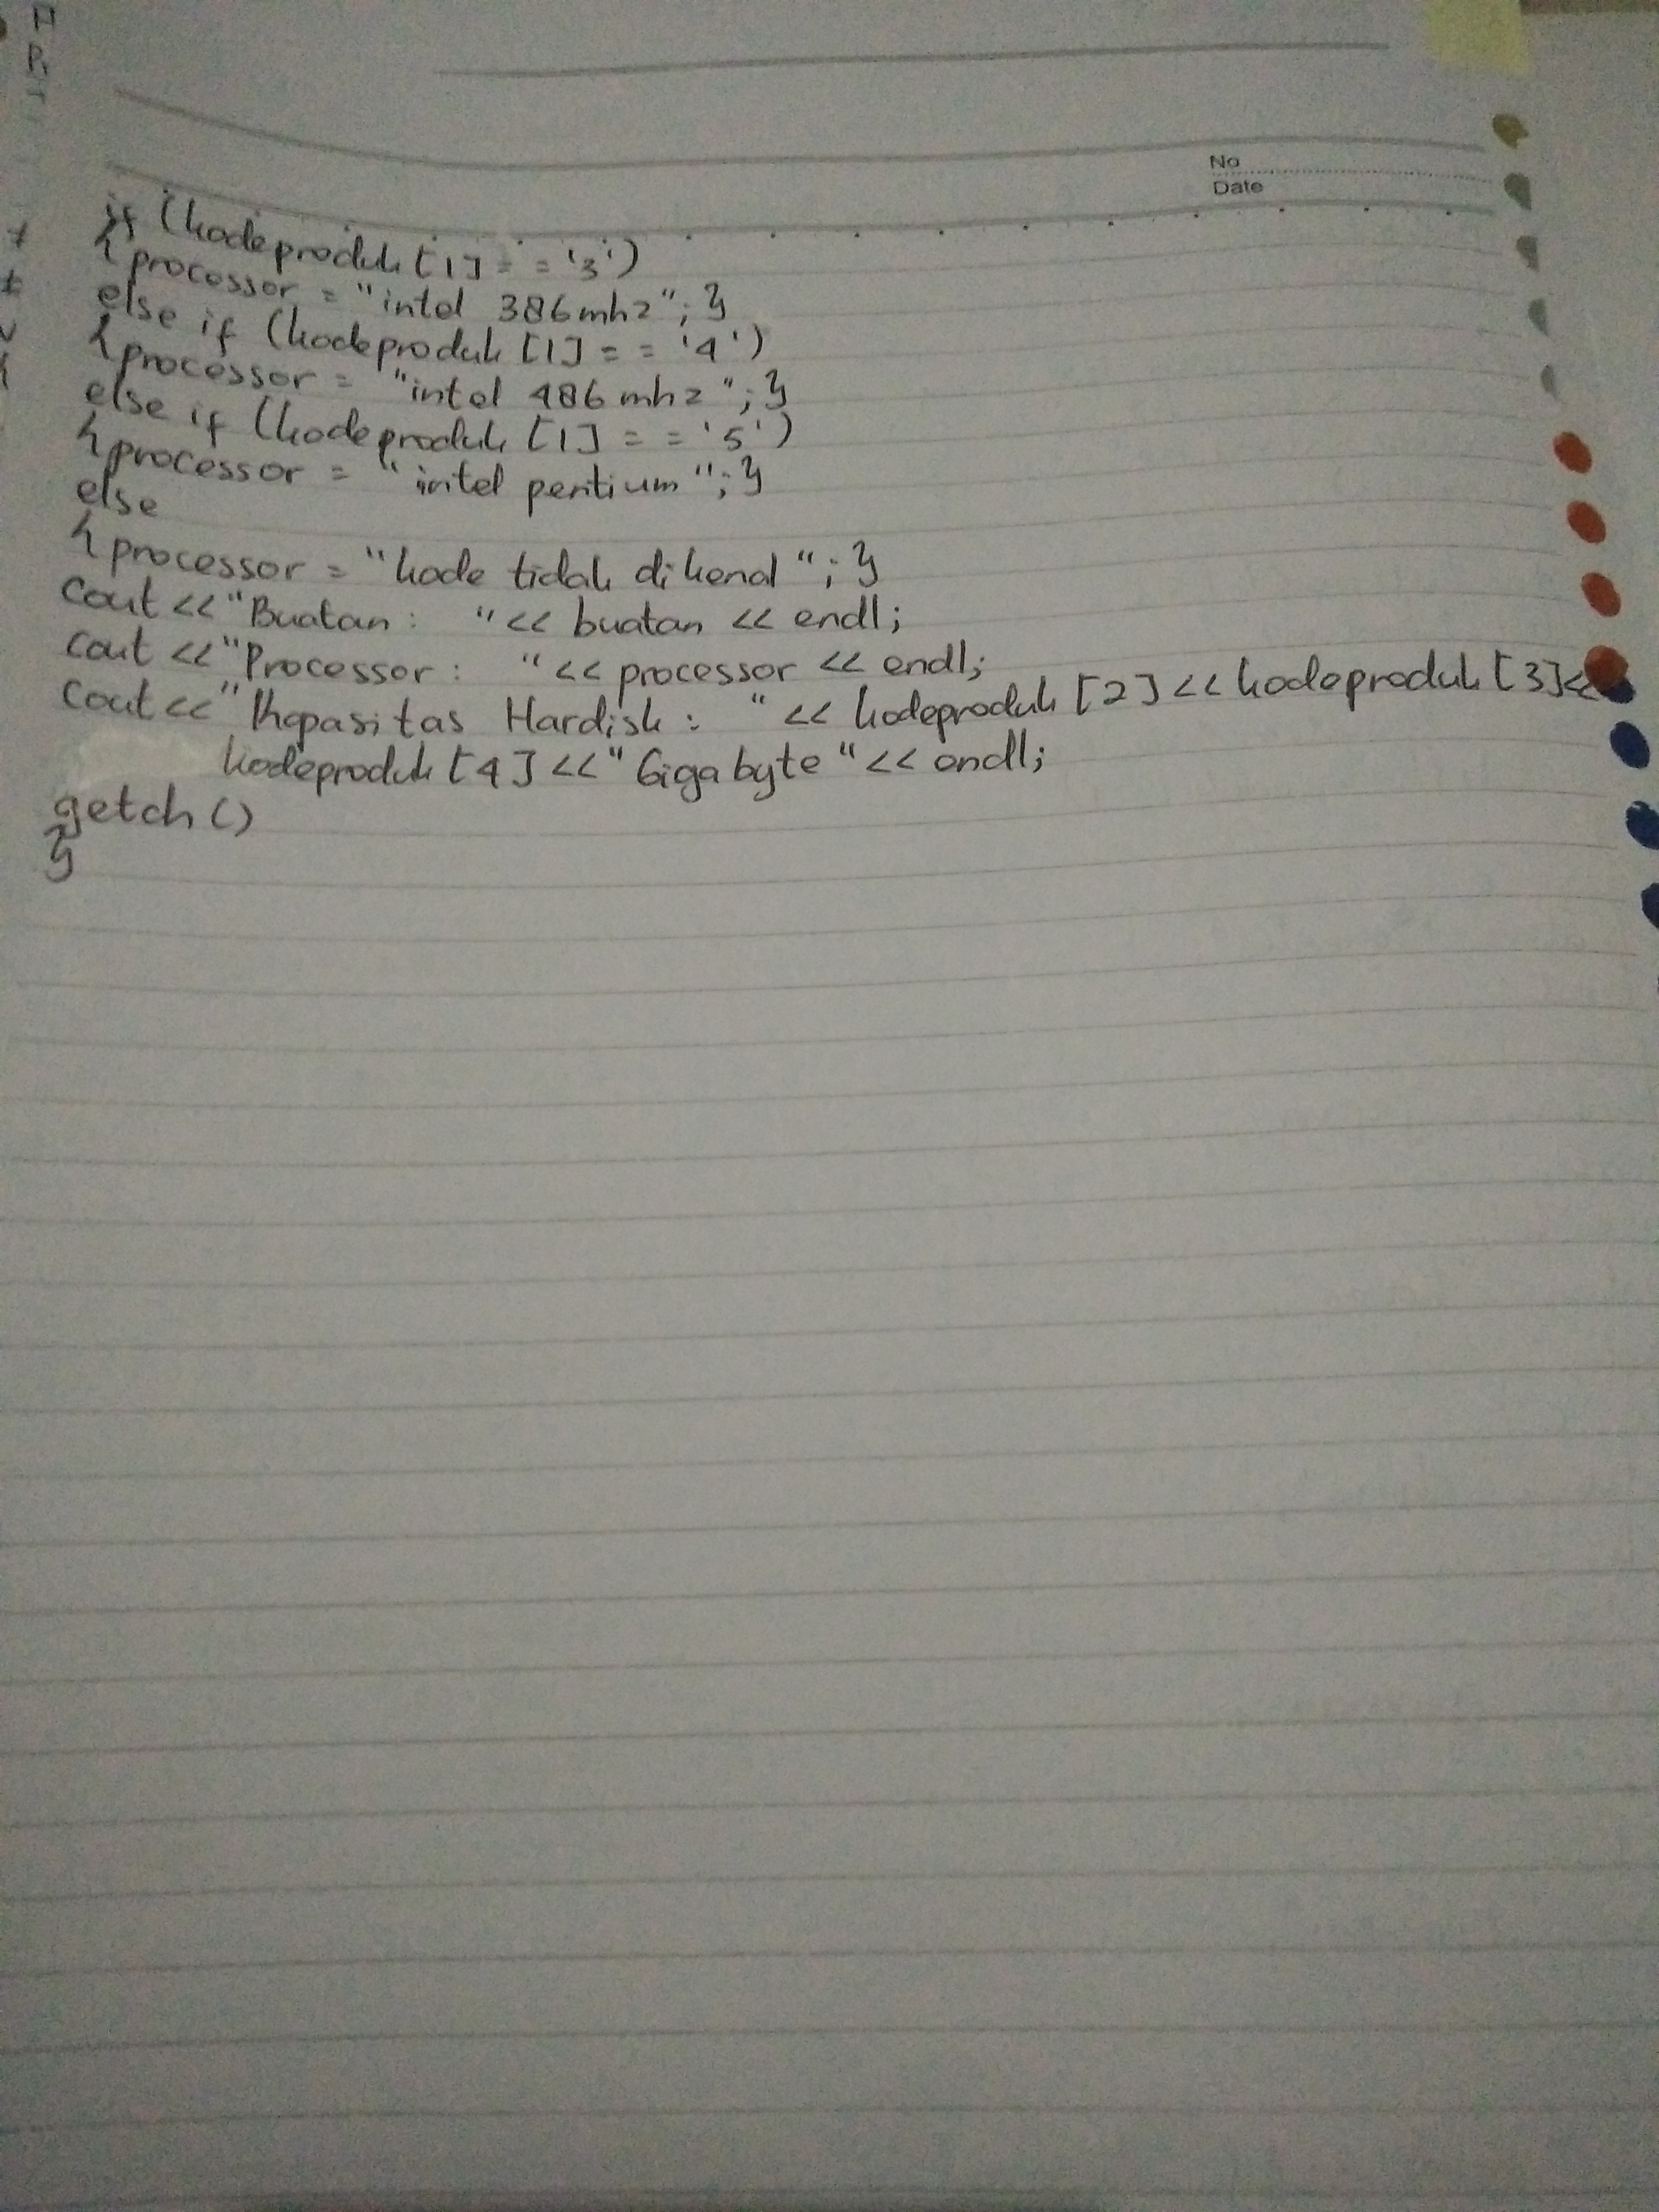 No
Date
if (kodeproduk [1] = = '3')
{processor = "intel 386mhz"; }
else if (kodeproduk [1] = = '4')
{processor = "intel 486 mhz"; }
else if (kodeproduk [1] = = '5')
{processor = "intel pentium"; }
else
{processor = "kode tidak dikenal"; }
cout << "Buatan : " << buatan << endl;
cout << "Processor : " << processor << endl;
cout << "Kapasitas Hardisk : " << kodeproduk [2] << kodeproduk [3] <<
kodeproduk [4] << "Gigabyte" << endl;
getch ()
}